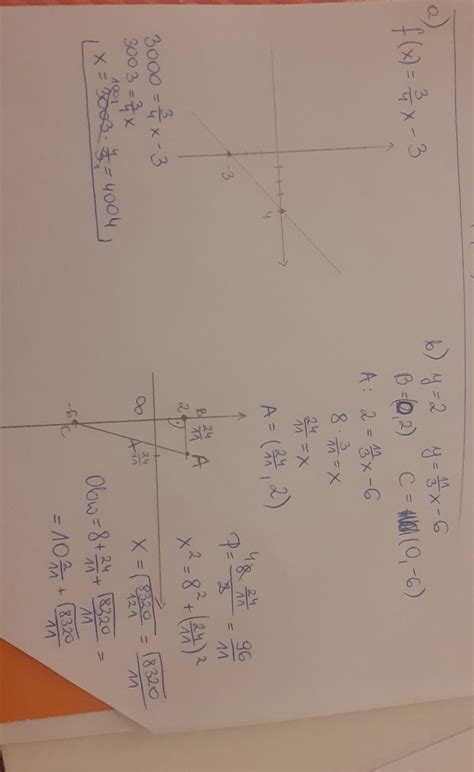 a)
f(x) = 3/4 x - 3
-3
4
3000 = 3/4 x - 3
3003 = 3/4 x
x = 3003 · 4/3 = 4004
1001
1
b) y = 2 y = 11/3 x - 6
B = (0, 2) C = (0, -6)
A: 2 = 11/3 x - 6
8 · 3/11 = x
24/11 = x
A = (24/11, 2)
B 24/11 A
2
0
24/11
-6
C
P = 8 · 24/11 / 2 = 96/11
4
x² = 8² + (24/11)²
x = √8320/121 = √8320/11
Obw = 8 + 24/11 + √8320/11 =
= 10 2/11 + √8320/11